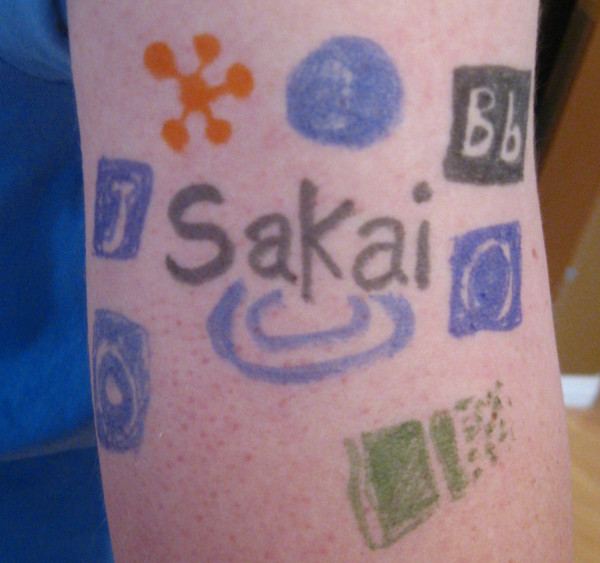 Bb
J
Sakai